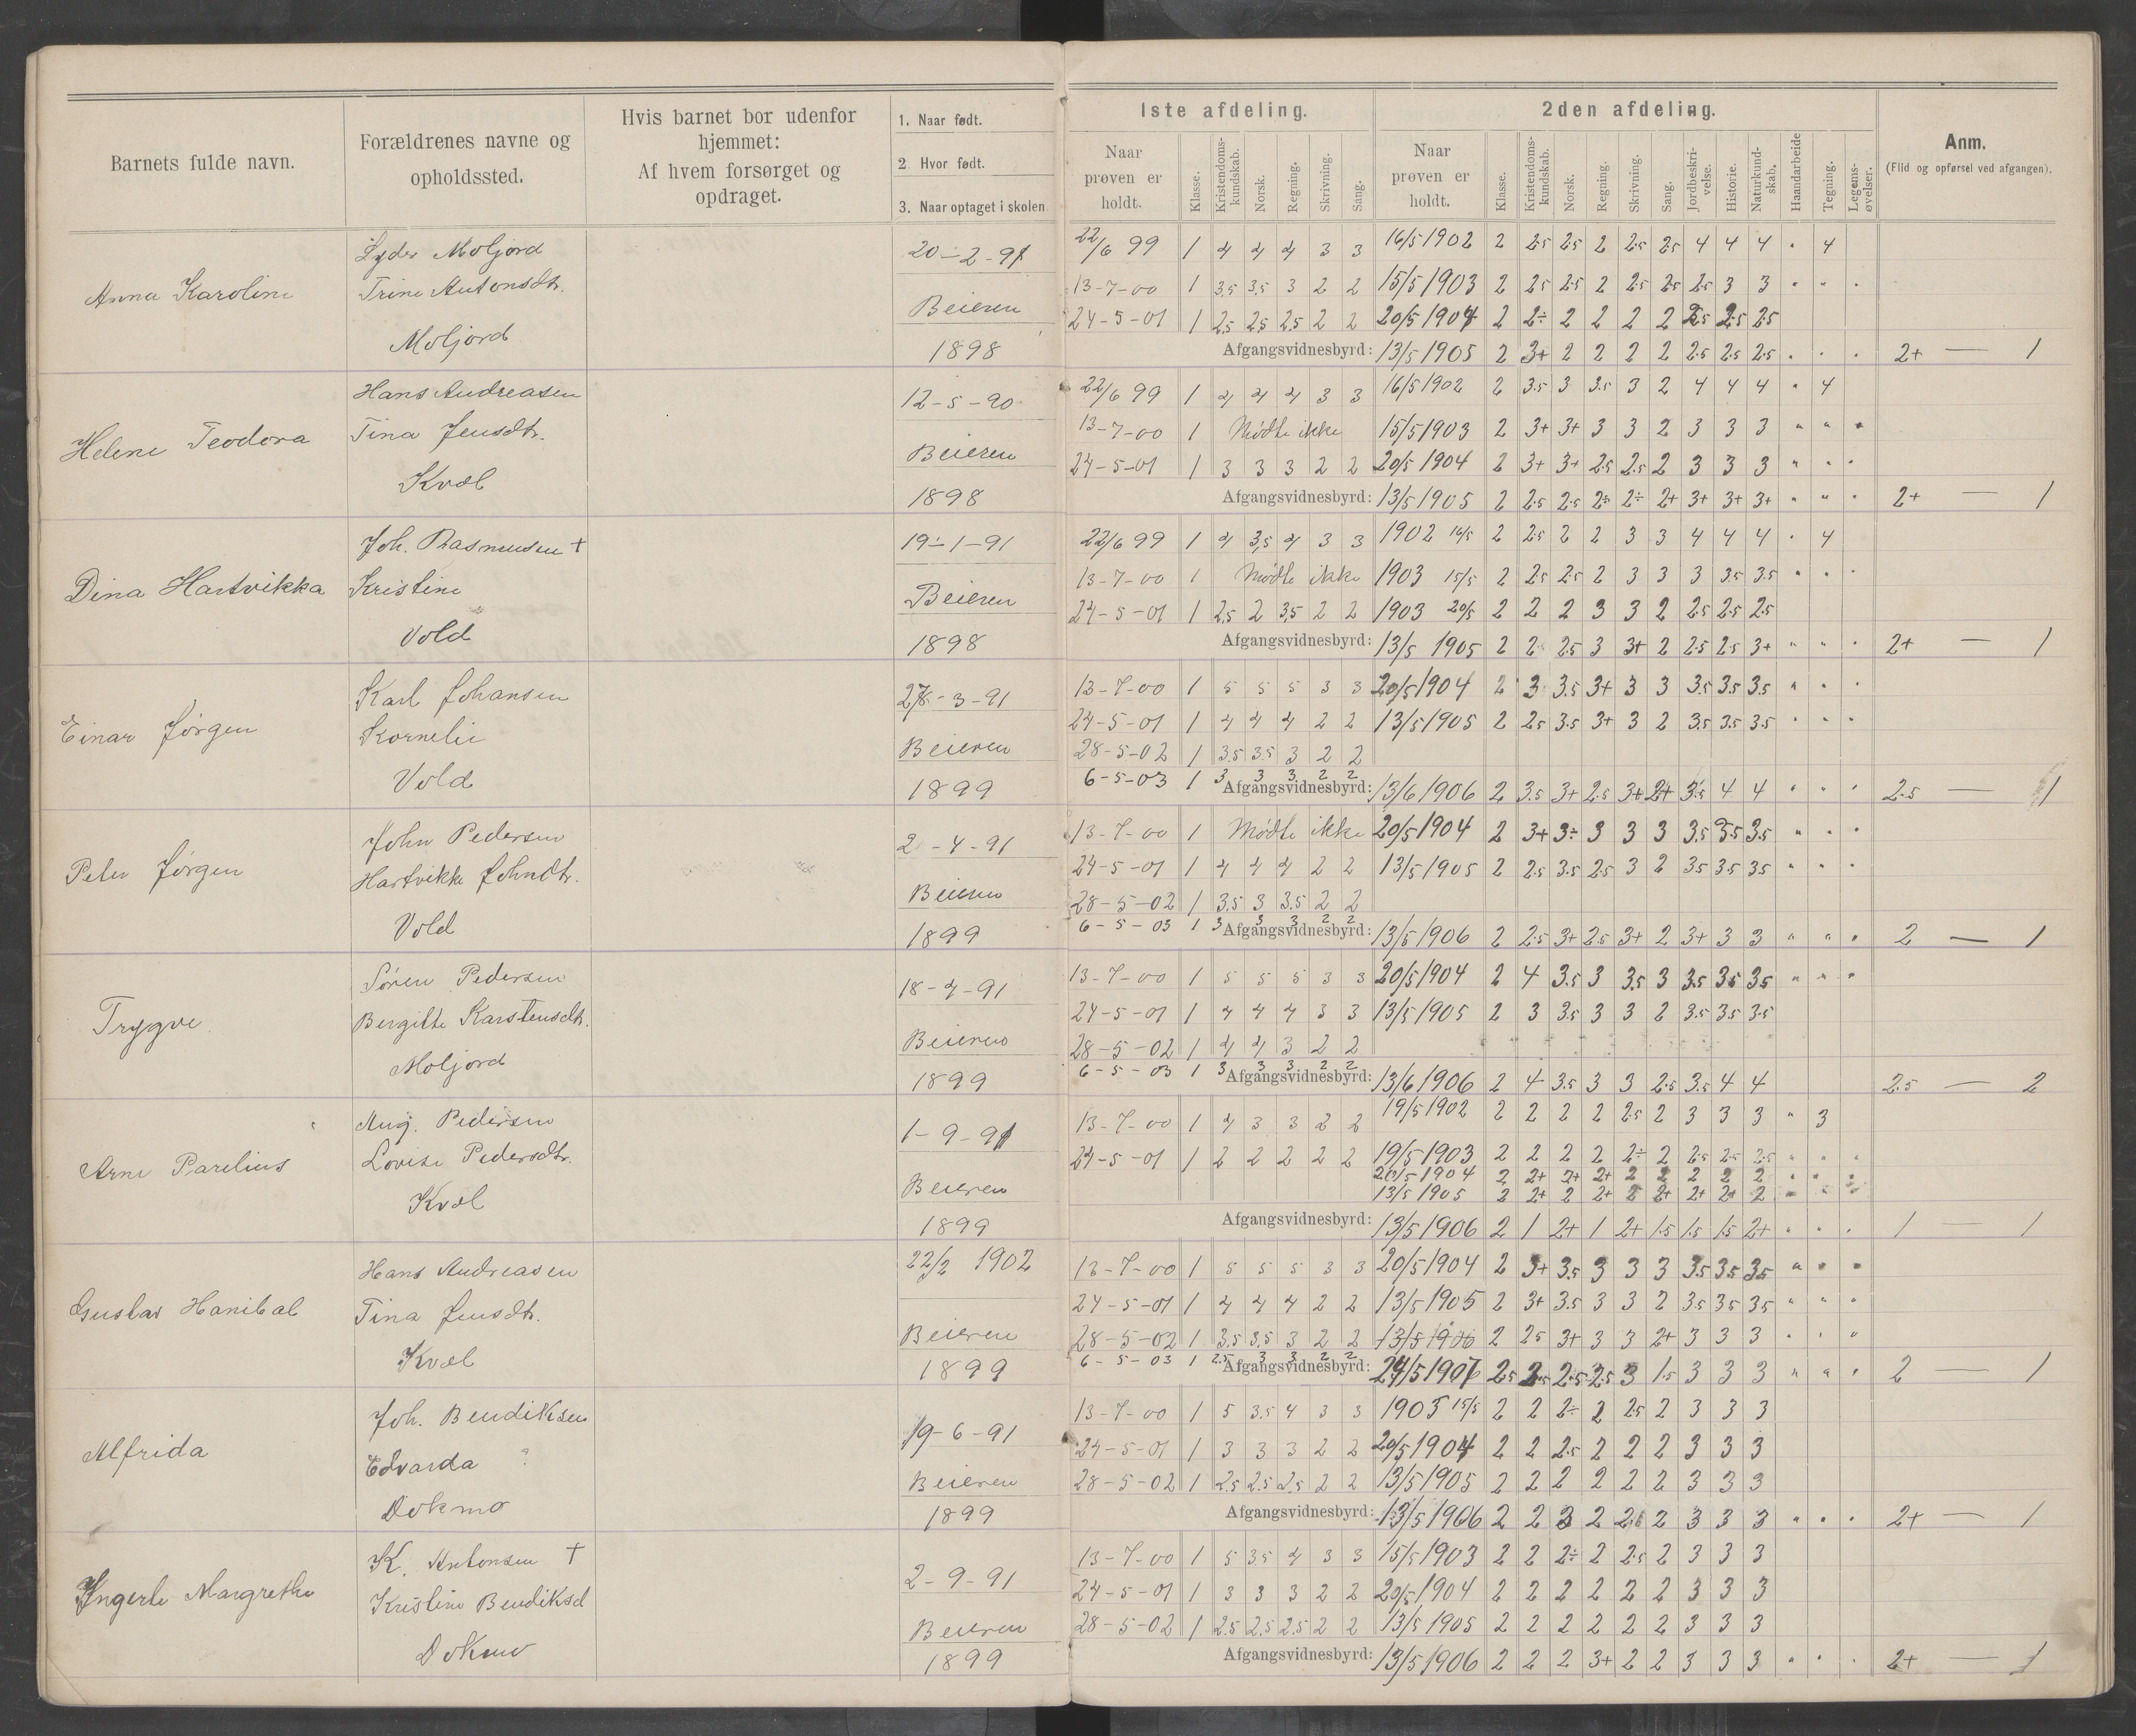 Barnets fulde navn.
Forældrenes navne og opholdssted.
Hvis barnet bor udenfor hjemmet:
Af hvem forsørget og opdraget.
1. Naar født.
2. Hvor født.
3. Naar optaget i skolen
1ste afdeling.
Naar prøven er holdt.
Klasse.
Kristendoms-kundskab.
Norsk.
Regning.
Skrivning.
Sang.
2den afdeling.
Naar prøven er holdt.
Klasse.
Kristendoms-kundskab.
Norsk.
Regning.
Skrivning.
Sang.
Jordbeskri-velse.
Historie.
Naturkund-skab.
Haandarbeide
Tegning.
Legems-øvelser.
Anm.
(Flid og opførsel ved afgangen).
Anna Karoline
Lyder Moljord
Trine Antonsdtr.
Moljord
20-2-91
Beieren
1898
22/6 99 1 4 4 4 3 3 16/5 1902 2 2.5 2.5 2 2.5 2.5 4 4 4 " 4
13-7-00 1 3,5 3,5 3 2 2 15/5 1903 2 2.5 2.5 2 2.5 2.5 2.5 3 3 " " "
24-5-01 1 2,5 2,5 2,5 2 2 20/5 1904 2 2÷ 2 2 2 2 2.5 2.5 2.5
Afgangsvidnesbyrd: 13/5 1905 2 3+ 2 2 2 2 2.5 2.5 2.5 " " " 2+ — 1
Helene Teodora
Hans Andreasen
Tina Jensdtr.
Kvæl
12-5-90
Beieren
1898
22/6 99 1 4 4 4 3 3 16/5 1902 2 3.5 3 3.5 3 2 4 4 4 " 4
13-7-00 1 Mødte ikke 15/5 1903 2 3+ 3+ 3 3 2 3 3 3 " " "
24-5-01 1 3 3 3 2 2 20/5 1904 2 3+ 3+ 2.5 2.5 2 3 3 3 " " "
Afgangsvidnesbyrd: 13/5 1905 2 2.5 2.5 2÷ 2÷ 2+ 3+ 3+ 3+ " " " 2+ — 1
Dina Hartvikka
Joh. Rasmussen +
Kristine
Vold
19-1-91
Beieren
1898
22/6 99 1 4 3,5 4 3 3 1902 16/5 2 2.5 2 2 3 3 4 4 4 " 4
13-7-00 1 Mødte ikke 1903 15/5 2 2.5 2.5 2 3 3 3 3.5 3.5 " " "
24-5-01 1 2,5 2 3,5 2 2 1903 20/5 2 2 2 3 3 2 2.5 2.5 2.5
Afgangsvidnesbyrd: 13/5 1905 2 2 2.5 3 3+ 2 2.5 2.5 3+ " " " 2+ — 1
Einar Jørgen
Karl Johansen
Kornelie
Vold
-3-91
Beieren
1899
13-7-00 1 5 5 5 3 3 20/5 1904 2 3 3.5 3+ 3 3 3.5 3.5 3.5 " " "
24-5-01 1 4 4 4 2 2 13/5 1905 2 2.5 3.5 3+ 3 2 3.5 3.5 3.5 " " "
28-5-02 1 3.5 3.5 3 2 2
6-5-03 1 3 3 3 2 2
Afgangsvidnesbyrd: 13/6 1906 2 3.5 3+ 2.5 3+ 2+ 3.5 4 4 " " " 2.5 — 1
Peter Jørgen
John Pedersen
Hartvikke Johndtr.
Vold
2-4-91
Beieren
1899
13-7-00 1 Mødte ikke 20/5 1904 2 3+ 3÷ 3 3 3 3.5 3.5 3.5 " " "
24-5-01 1 4 4 4 2 2 13/5 1905 2 2.5 3.5 2.5 3 2 3.5 3.5 3.5 " " "
28-5-02 1 3.5 3 3.5 2 2
6-5-03 1 3 3 3 2 2
Afgangsvidnesbyrd: 13/5 1906 2 2.5 3+ 2.5 3+ 2 3+ 3 3 " " " 2 — 1
Trygve
Søren Pedersen
Bergitte Karstensdtr.
Moljord
18-4-91
Beieren
1899
13-7-00 1 5 5 5 3 3 20/5 1904 2 4 3.5 3 3.5 3 3.5 3.5 3.5 " " "
24-5-01 1 4 4 4 3 3 13/5 1905 2 3 3.5 3 3 2 3.5 3.5 3.5
28-5-02 1 4 4 3 2 2
6-5-03 1 3 3 3 2 2
Afgangsvidnesbyrd: 13/6 1906 2 4 3.5 3 3 2.5 3.5 4 4 2.5 — 2
Arne Parelius
Aug. Pedersen
Lovise Pedersdtr.
Kvæl
1-9-91
Beieren
1899
13-7-00 1 4 3 3 2 2 19/5 1902 2 2 2 2 2.5 2 3 3 3 " 3
24-5-01 1 2 2 2 2 2 19/5 1903 2 2 2 2 2÷ 2 2.5 2.5 2.5 " " "
20/5 1904 2 2+ 2+ 2+ 2 2 2 2 2 " " "
13/5 1905 2 2+ 2 2+ 2 2+ 2+ 2+ 2 " " "
Afgangsvidnesbyrd: 13/5 1906 2 1 2+ 1 2+ 1.5 1.5 1.5 2+ " " " 1 — 1
Gustav Hanibal
Hans Andreasen
Tina Jensdtr.
Kvæl
22/2 1902
Beieren
1899
13-7-00 1 5 5 5 3 3 20/5 1904 2 3+ 3.5 3 3 3 3.5 3.5 3.5 " " "
24-5-01 1 4 4 4 2 2 13/5 1905 2 3+ 3.5 3 3 2 3.5 3.5 3.5 " " "
28-5-02 1 3,5 3,5 3 2 2 13/5 1906 2 2.5 3+ 3 3 2+ 3 3 3 " " "
6-5-03 1 2.5 3 3 2 2
Afgangsvidnesbyrd: 24/5 1907 2.5 2.5 2.5 3 1.5 3 3 3 " " " 2 — 1
Alfrida
Joh. Bendiksen
Edvarda ?
Dokmo
19-6-91
Beieren
1899
13-7-00 1 5 3.5 4 3 3 1903 15/5 2 2 2÷ 2 2.5 2 3 3 3
24-5-01 1 3 3 3 2 2 20/5 1904 2 2 2.5 2 2 2 3 3 3
28-5-02 1 2.5 2.5 2.5 2 2 13/5 1905 2 2 2 2 2 2 3 3 3
Afgangsvidnesbyrd: 13/5 1906 2 2 2 2 2 3 3 3 " " " 2+ — 1
Ingerle Margrethe
K. Antonsen +
Kristine Bendiksd
Dokmo
2-9-91
Beieren
1899
13-7-00 1 5 3.5 4 3 3 15/5 1903 2 2 2÷ 2 2.5 2 3 3 3
24-5-01 1 3 3 3 2 2 20/5 1904 2 2 2 2 2 2 3 3 3
28-5-02 1 2.5 2.5 2.5 2 2 13/5 1905 2 2 2 2 2 2 3 3 3
Afgangsvidnesbyrd: 13/5 1906 2 2 2 3+ 2 2 3 3 3 " " " 2+ — 1